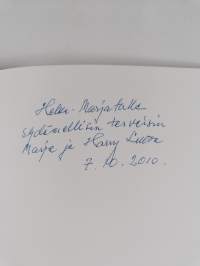 Helka-Marjatalle
sydämellisin terveisin
Marja ja Harry
7.10.2010.